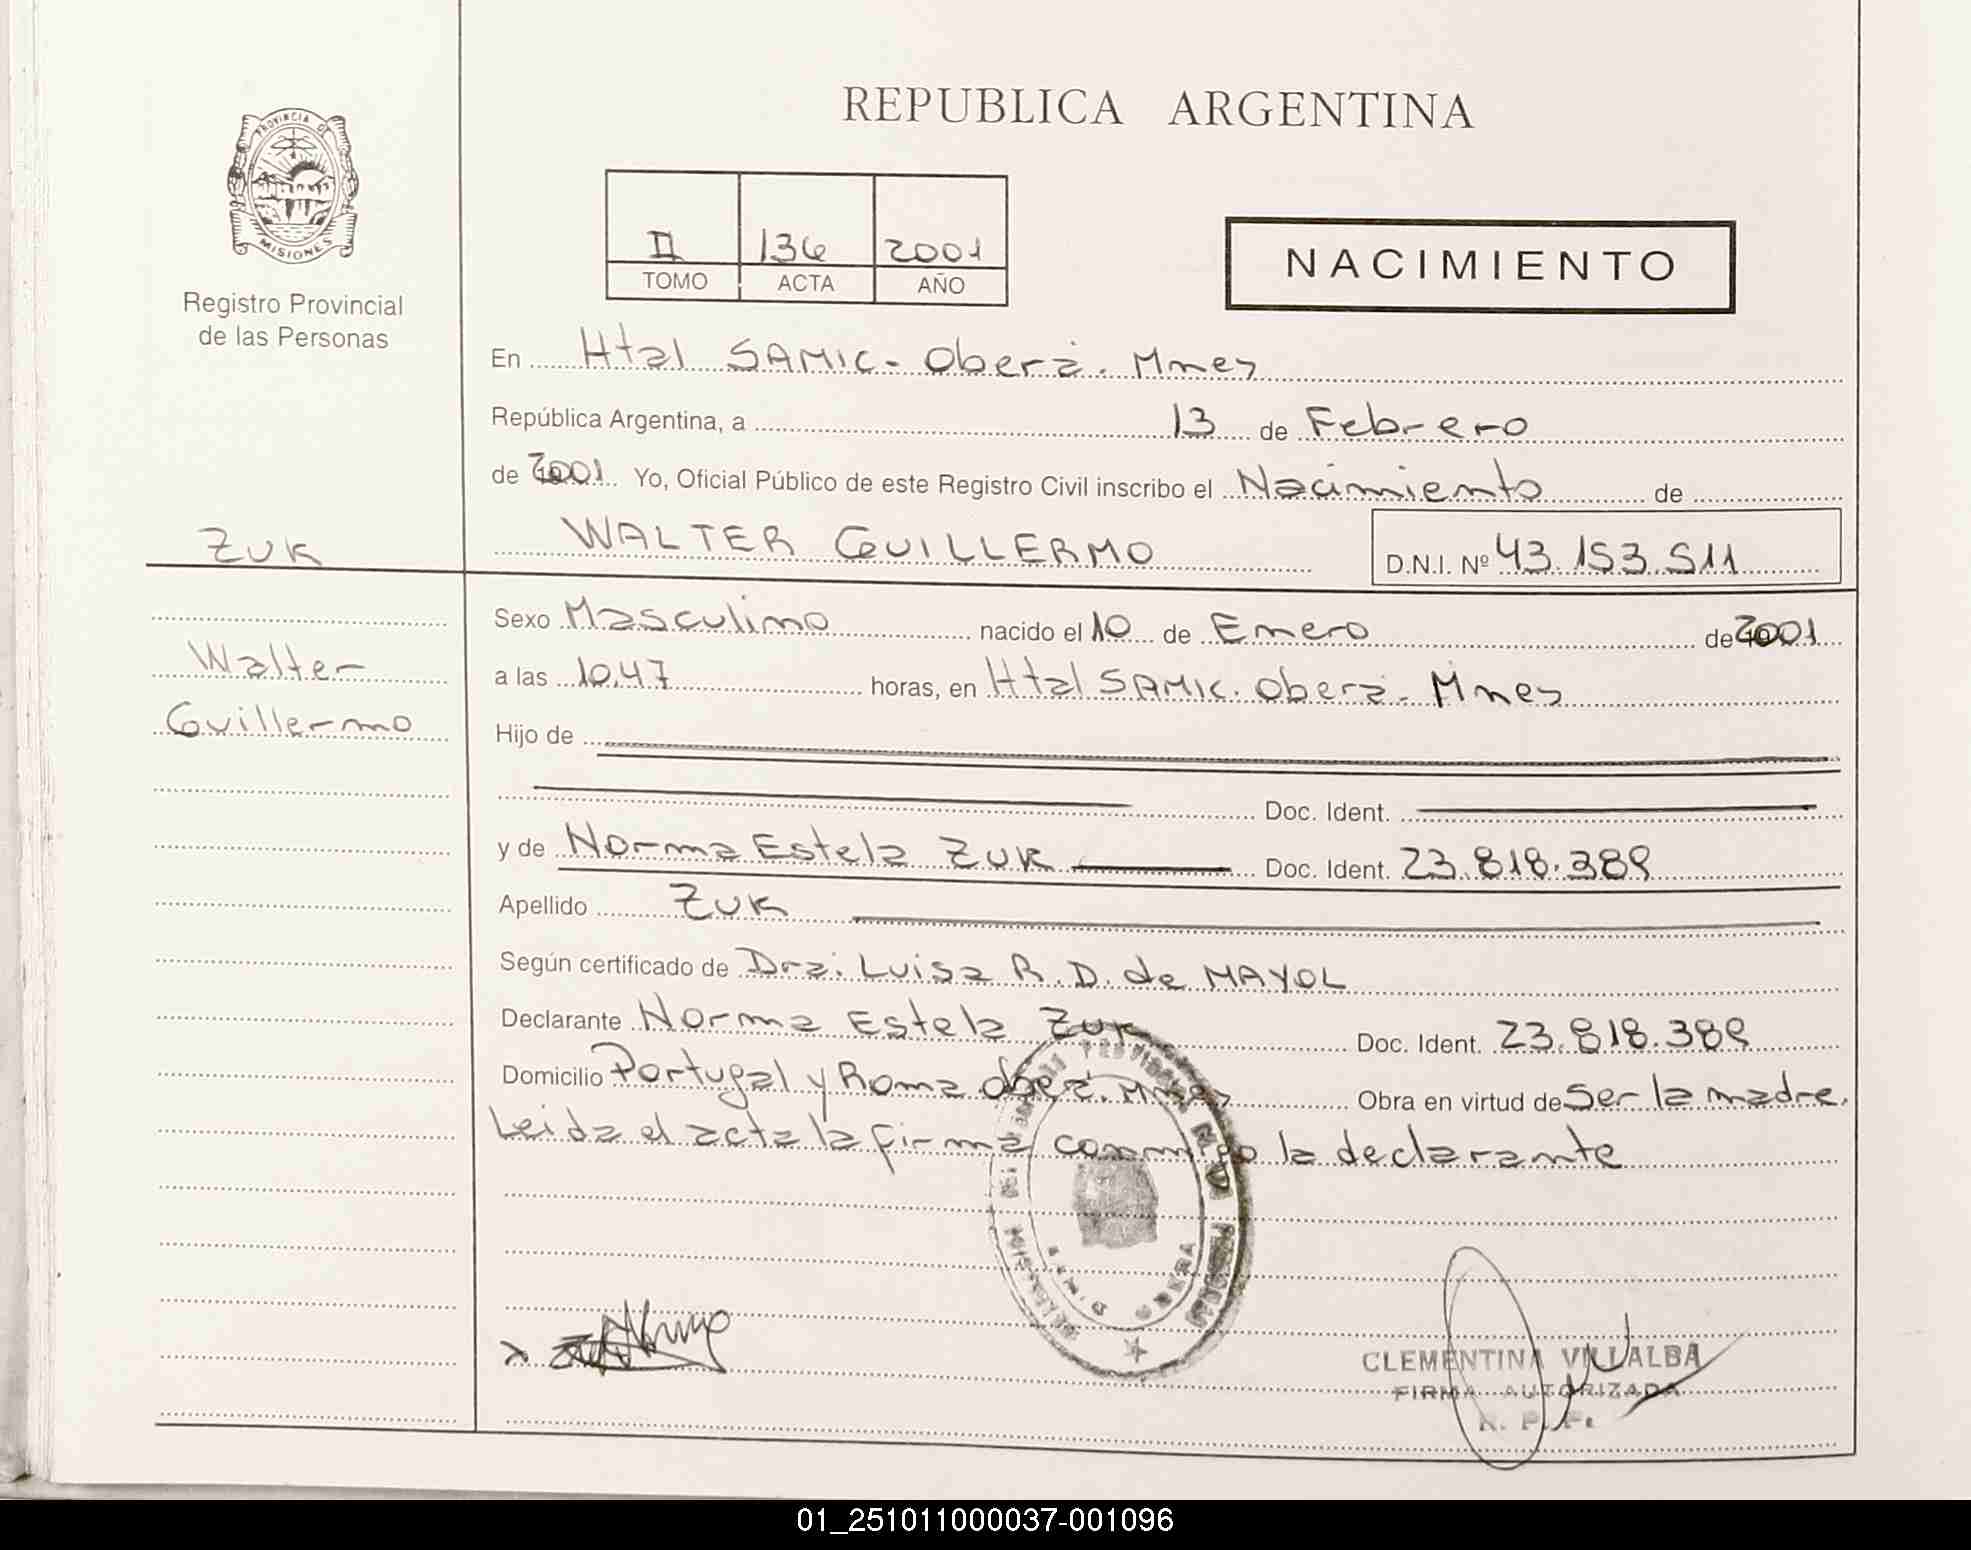 REPUBLICA ARGENTINA
PROVINCIA DE
MISIONES
Registro Provincial
de las Personas
II 136 2001
TOMO ACTA AÑO
NACIMIENTO
En Htal SAMIC- Oberá. Mnes
República Argentina, a 13 de Febrero
de 2001 Yo, Oficial Público de este Registro Civil inscribo el Nacimiento de
ZUK
WALTER GUILLERMO D.N.I. Nº 43.153.511
Walter
Guillermo
Sexo Masculino nacido el 10 de Enero de 2001
a las 10.47 horas, en Htal SAMIC. Oberá- Mnes
Hijo de
Doc. Ident.
y de Norma Estela Zuk Doc. Ident. 23.818.389
Apellido Zuk
Según certificado de Dra. Luisa R.D. de MAYOL
Declarante Norma Estela Zuk Doc. Ident. 23.818.389
Domicilio Portugal y Roma Oberá. Mnes Obra en virtud de Ser la madre.
Leida el acta la firma conmigo la declarante
CLEMENTINA VILLALBA
FIRMA AUTORIZADA
R. P. P.
01_251011000037-001096